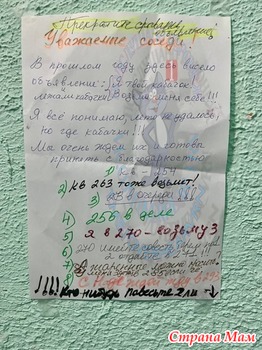 Прекратите срывать объявление!
Уважаемые соседи!
В прошлом году здесь висело
объявление: "Я твой кабачок!
Возьми меня себе!!!
Я всё понимаю, лето не удалось,
но где кабачки!!!
Мы очень ждем их и готовы
принять с благодарностью
1) кв - 254
2) кв 263 тоже возьмет!
3)
4) 256 в деле
5) Я в 270 - возьму 3
6) 270 имейте совесть,
2 отдайте в
7)
8)
!!!! Кто нибудь повесьте
Страна Мам